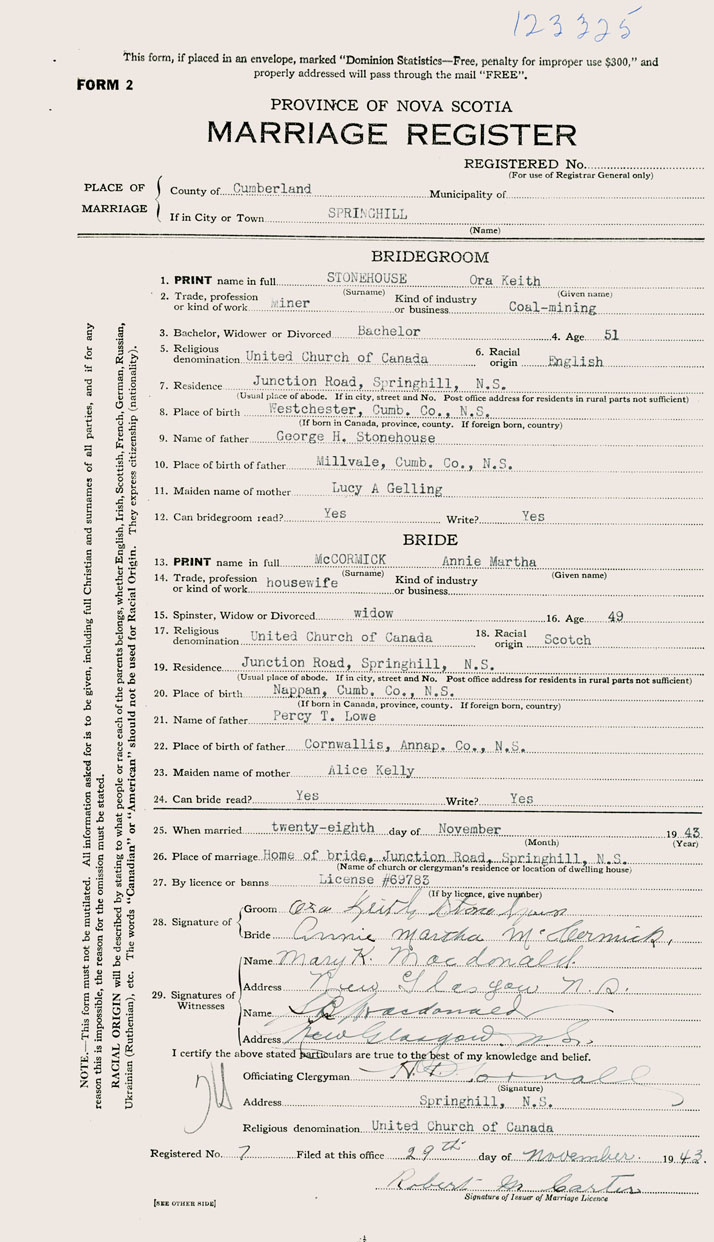 123325
This form, if placed in an envelope, marked "Dominion Statistics—Free, penalty for improper use $300," and
properly addressed will pass through the mail "FREE".
FORM 2
PROVINCE OF NOVA SCOTIA
MARRIAGE REGISTER
REGISTERED No.
(For use of Registrar General only)
PLACE OF MARRIAGE
County of Cumberland Municipality of
If in City or Town SPRINGHILL
(Name)
BRIDEGROOM
1. PRINT name in full STONEHOUSE Ora Keith
(Surname) (Given name)
2. Trade, profession or kind of work Miner Kind of industry or business Coal-mining
3. Bachelor, Widower or Divorced Bachelor 4. Age 51
5. Religious denomination United Church of Canada 6. Racial origin English
7. Residence Junction Road, Springhill, N.S.
(Usual place of abode. If in city, street and No. Post office address for residents in rural parts not sufficient)
8. Place of birth Westchester, Cumb. Co., N.S.
(If born in Canada, province, county. If foreign born, country)
9. Name of father George H. Stonehouse
10. Place of birth of father Millvale, Cumb. Co., N.S.
11. Maiden name of mother Lucy A Gelling
12. Can bridegroom read? Yes Write? Yes
BRIDE
13. PRINT name in full McCORMICK Annie Martha
(Surname) (Given name)
14. Trade, profession or kind of work housewife Kind of industry or business
15. Spinster, Widow or Divorced widow 16. Age 49
17. Religious denomination United Church of Canada 18. Racial origin Scotch
19. Residence Junction Road, Springhill, N.S.
(Usual place of abode. If in city, street and No. Post office address for residents in rural parts not sufficient)
20. Place of birth Nappan, Cumb. Co., N.S.
(If born in Canada, province, county. If foreign born, country)
21. Name of father Percy T. Lowe
22. Place of birth of father Cornwallis, Annap. Co., N.S.
23. Maiden name of mother Alice Kelly
24. Can bride read? Yes Write? Yes
25. When married twenty-eighth day of November 1943
(Month) (Year)
26. Place of marriage Home of bride, Junction Road, Springhill, N.S.
(Name of church or clergyman's residence or location of dwelling house)
27. By licence or banns License #69783
(If by licence, give number)
28. Signature of
Groom Ora Keith Stonehouse
Bride Annie Martha McCormick,
29. Signatures of Witnesses
Name Mary K. Macdonald
Address New Glasgow N.S.
Name Macdonald
Address New Glasgow. N.S.
I certify the above stated particulars are true to the best of my knowledge and belief.
Officiating Clergyman
(Signature)
Address Springhill, N.S.
Religious denomination United Church of Canada
Registered No. 7 Filed at this office 29th day of November. 1943.
Robert M Carter
Signature of Issuer of Marriage Licence
[SEE OTHER SIDE]
NOTE.—This form must not be mutilated. All information asked for is to be given, including full Christian and surnames of all parties, and if for any
reason this is impossible, the reason for the omission must be stated.
RACIAL ORIGIN will be described by stating to what people or race each of the parents belongs, whether English, Irish, Scottish, French, German, Russian,
Ukrainian (Ruthenian), etc. The words "Canadian" or "American" should not be used for Racial Origin. They express citizenship (nationality).